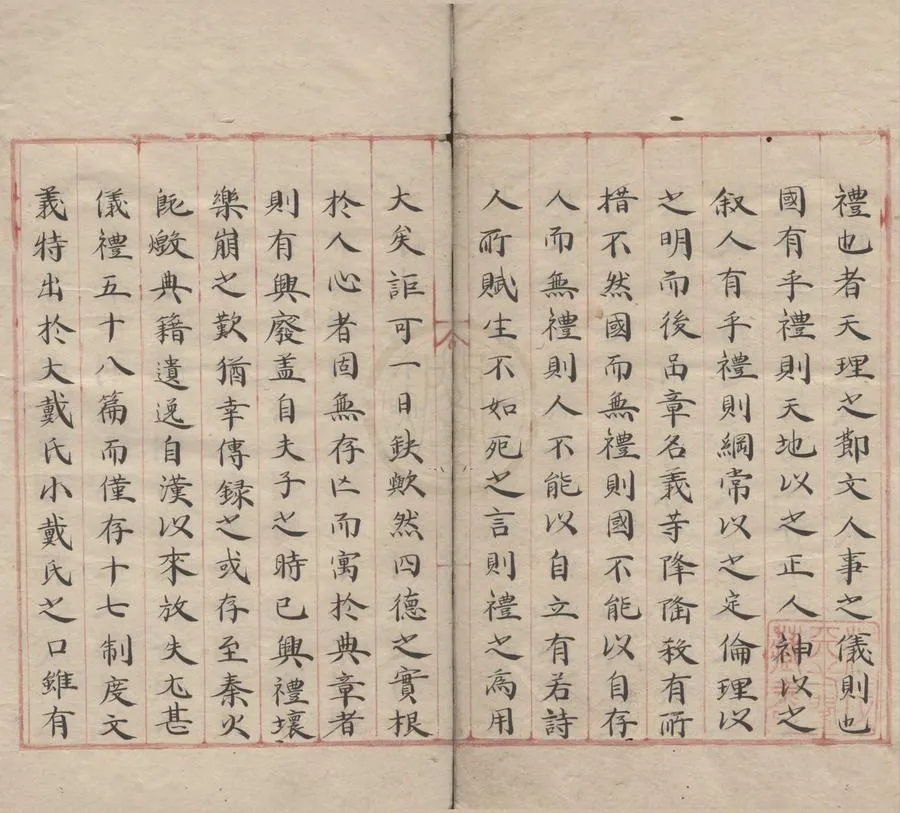 禮也者天理之節文人事之儀則也
國有乎禮則天地以之正人神以之
叙人有乎禮則綱常以之定倫理以
之明而後品章名義等降隆殺有所
措不然國而無禮則國不能以自存
人而無禮則人不能以自立有若詩
人所賦生不如死之言則禮之爲用
大矣詎可一日缺歟然四德之實根
於人心者固無存亡而寓於典章者
則有興廢盖自夫子之時已興禮壞
樂崩之歎猶幸傳録之或存至秦火
既燬典籍遺逸自漢以來放失尤甚
儀禮五十八篇而僅存十七制度文
義特出於大戴氏小戴氏之口雖有